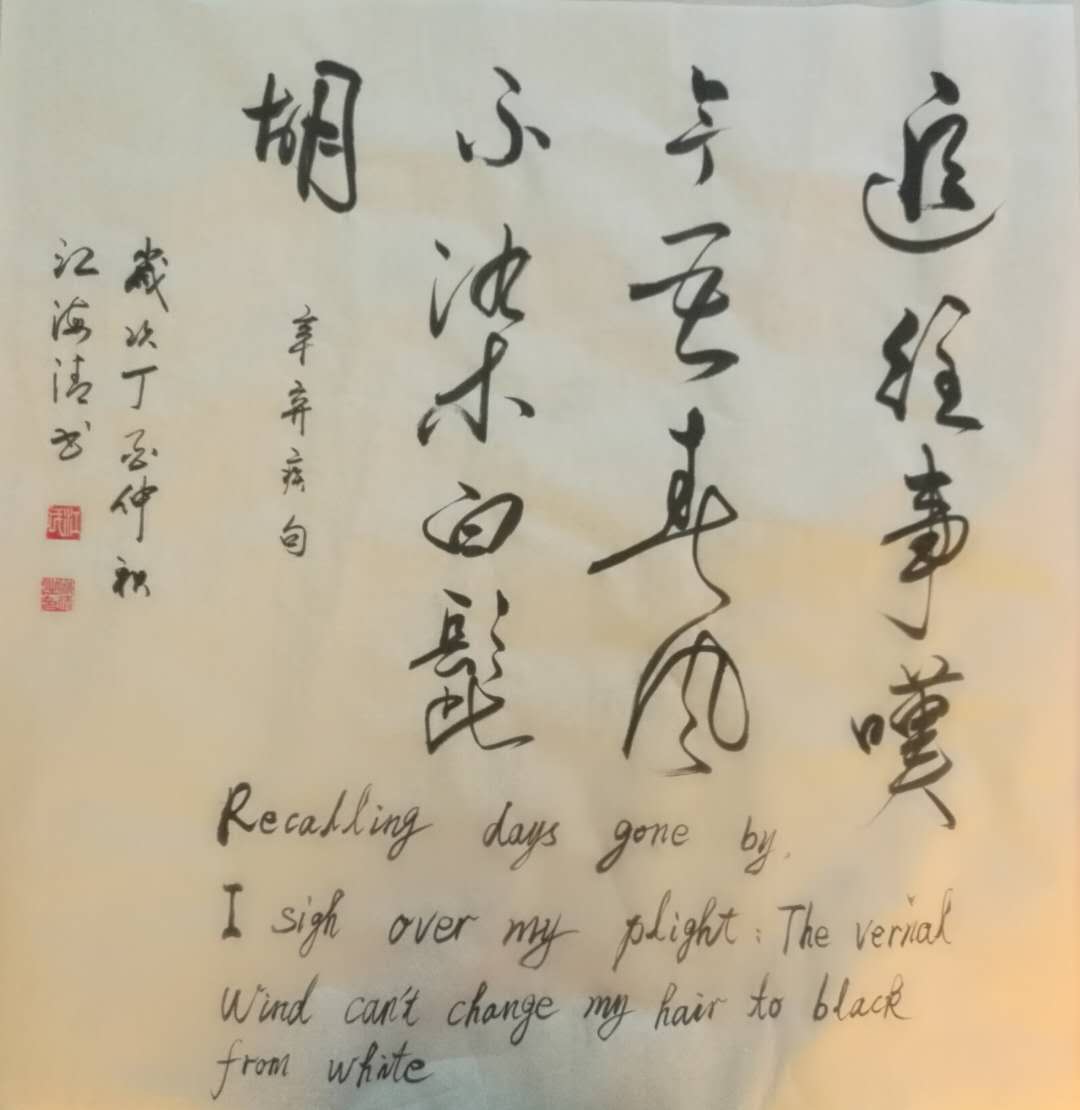 追往事嘆
今吾春风
不染白髭
胡
辛弃疾句
歲次丁酉仲秋
江海清书
江氏
Recalling days gone by,
I sigh over my plight: The vernal
Wind can't change my hair to black
from white